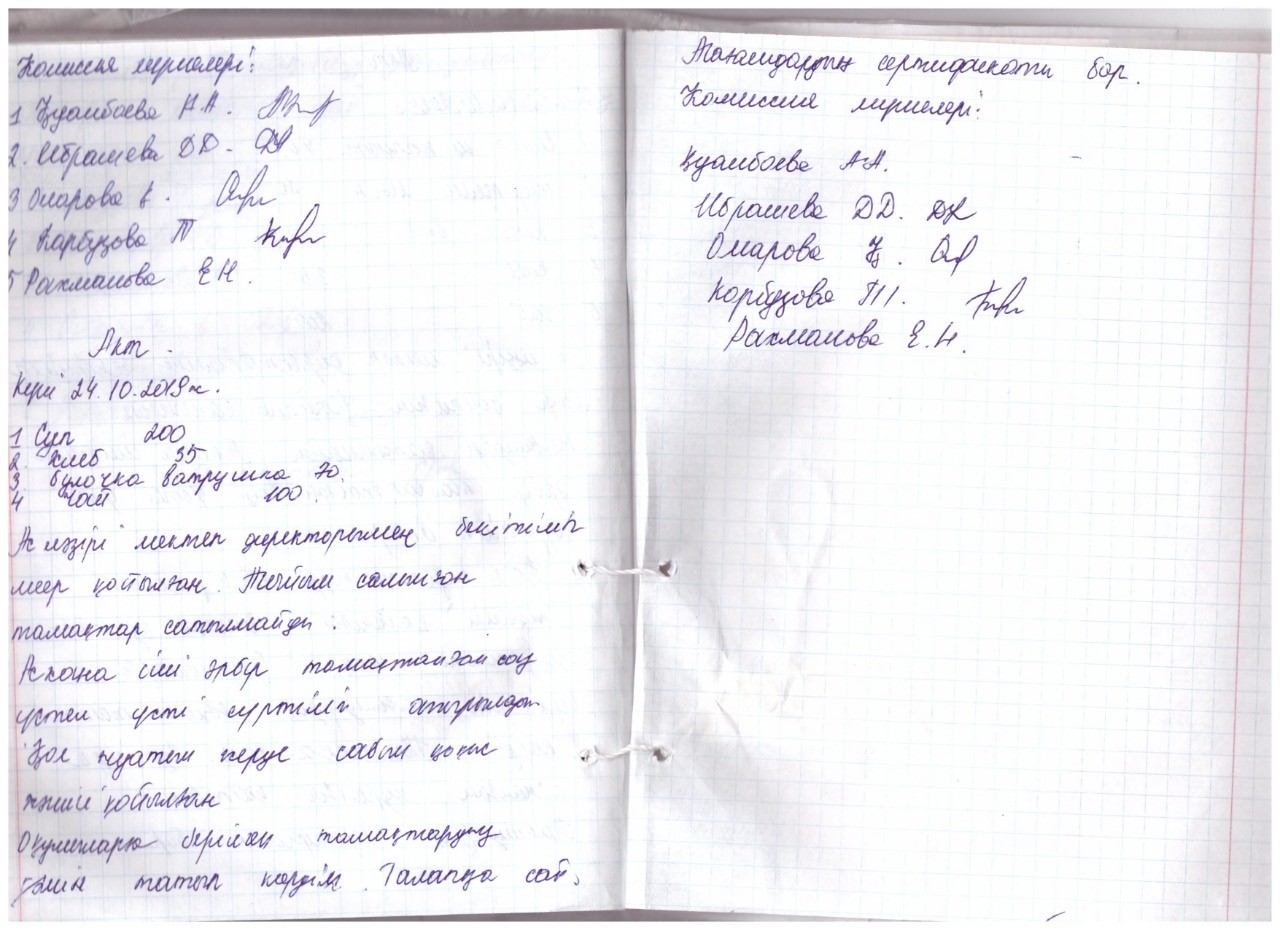 Комиссия мүшелері:
1 Құдайбаева А.А.
2. Ибрашева Д.Д.
3 Омарова Қ.
4 Карбузова Т
5 Рахманова Е.Н.
Акт
Күні 24.10.2019ж.
1 Суп 200
2. Хлеб 35
3 булочка ватрушка 70
4 чай 200.
Ас мәзірі мектеп директорымен бекітіліп
мөр қойылған. Тыйым салынған
тамақтар сатылмайды.
Асхана іші әрбір тамақтанған соң
үстел үсті сүртіліп отырылады
Қол жуатын жерде сабын қоқыс
жәшігі қойылған
Оқушыларға берілген тамақтардың
дәмін татып көрдім. Талапқа сай,
Тағамдардың сертификаты бар.
Комиссия мүшелері:
Құдайбаева А.А.
Ибрашева Д.Д.
Омарова Қ.
Карбузова Т.
Рахманова Е.Н.